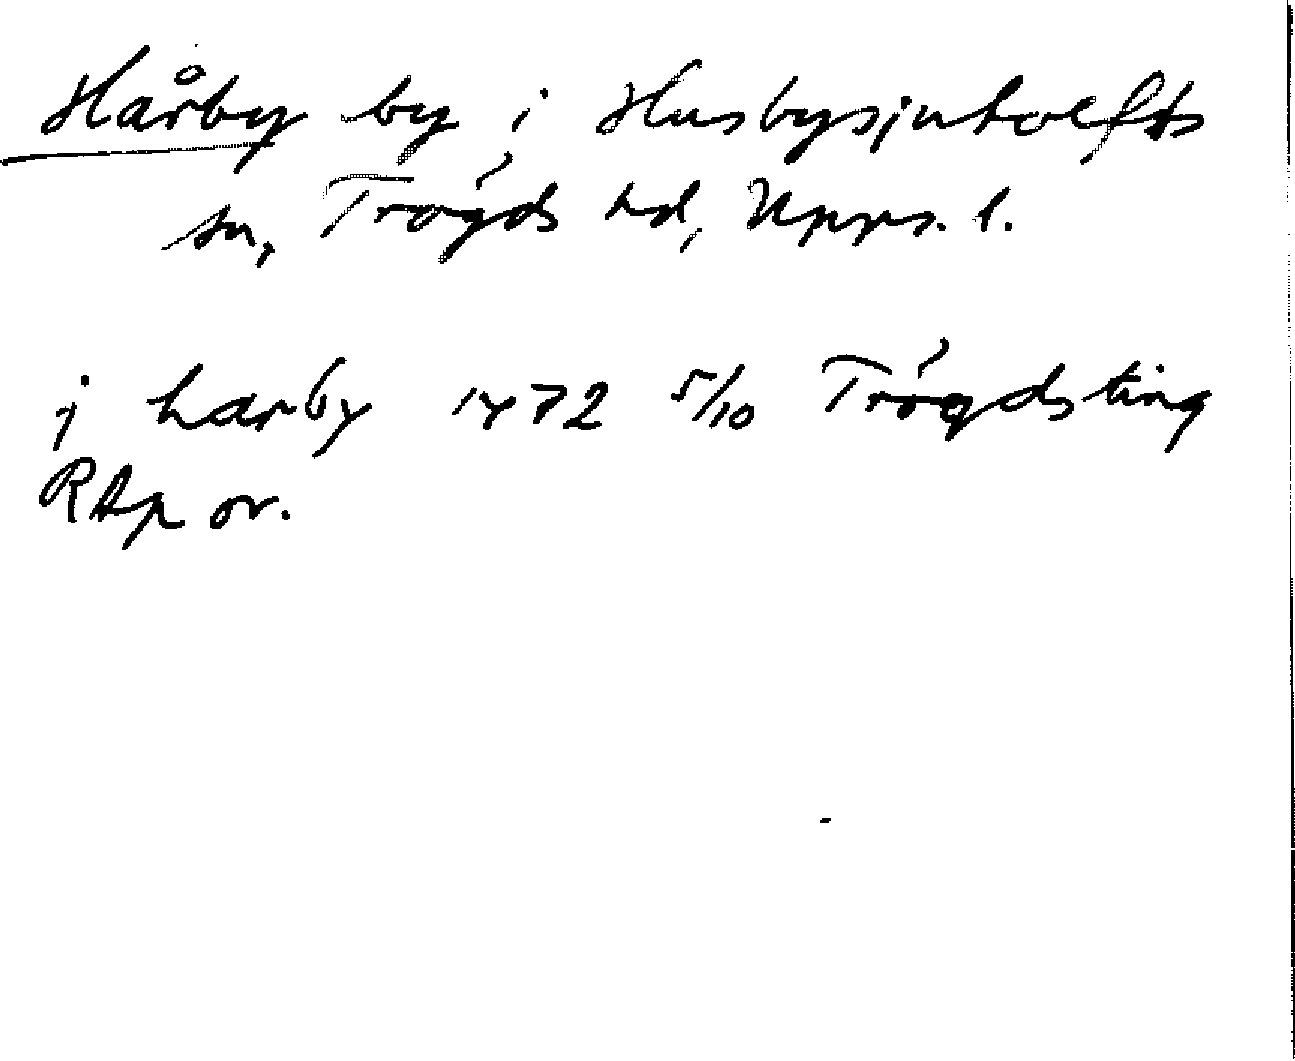 Hårby by i Husbysjutolfts
sn, Trögds hd, Upps. l.
j harby 1472 5/10 Trögdsting
RAp or.